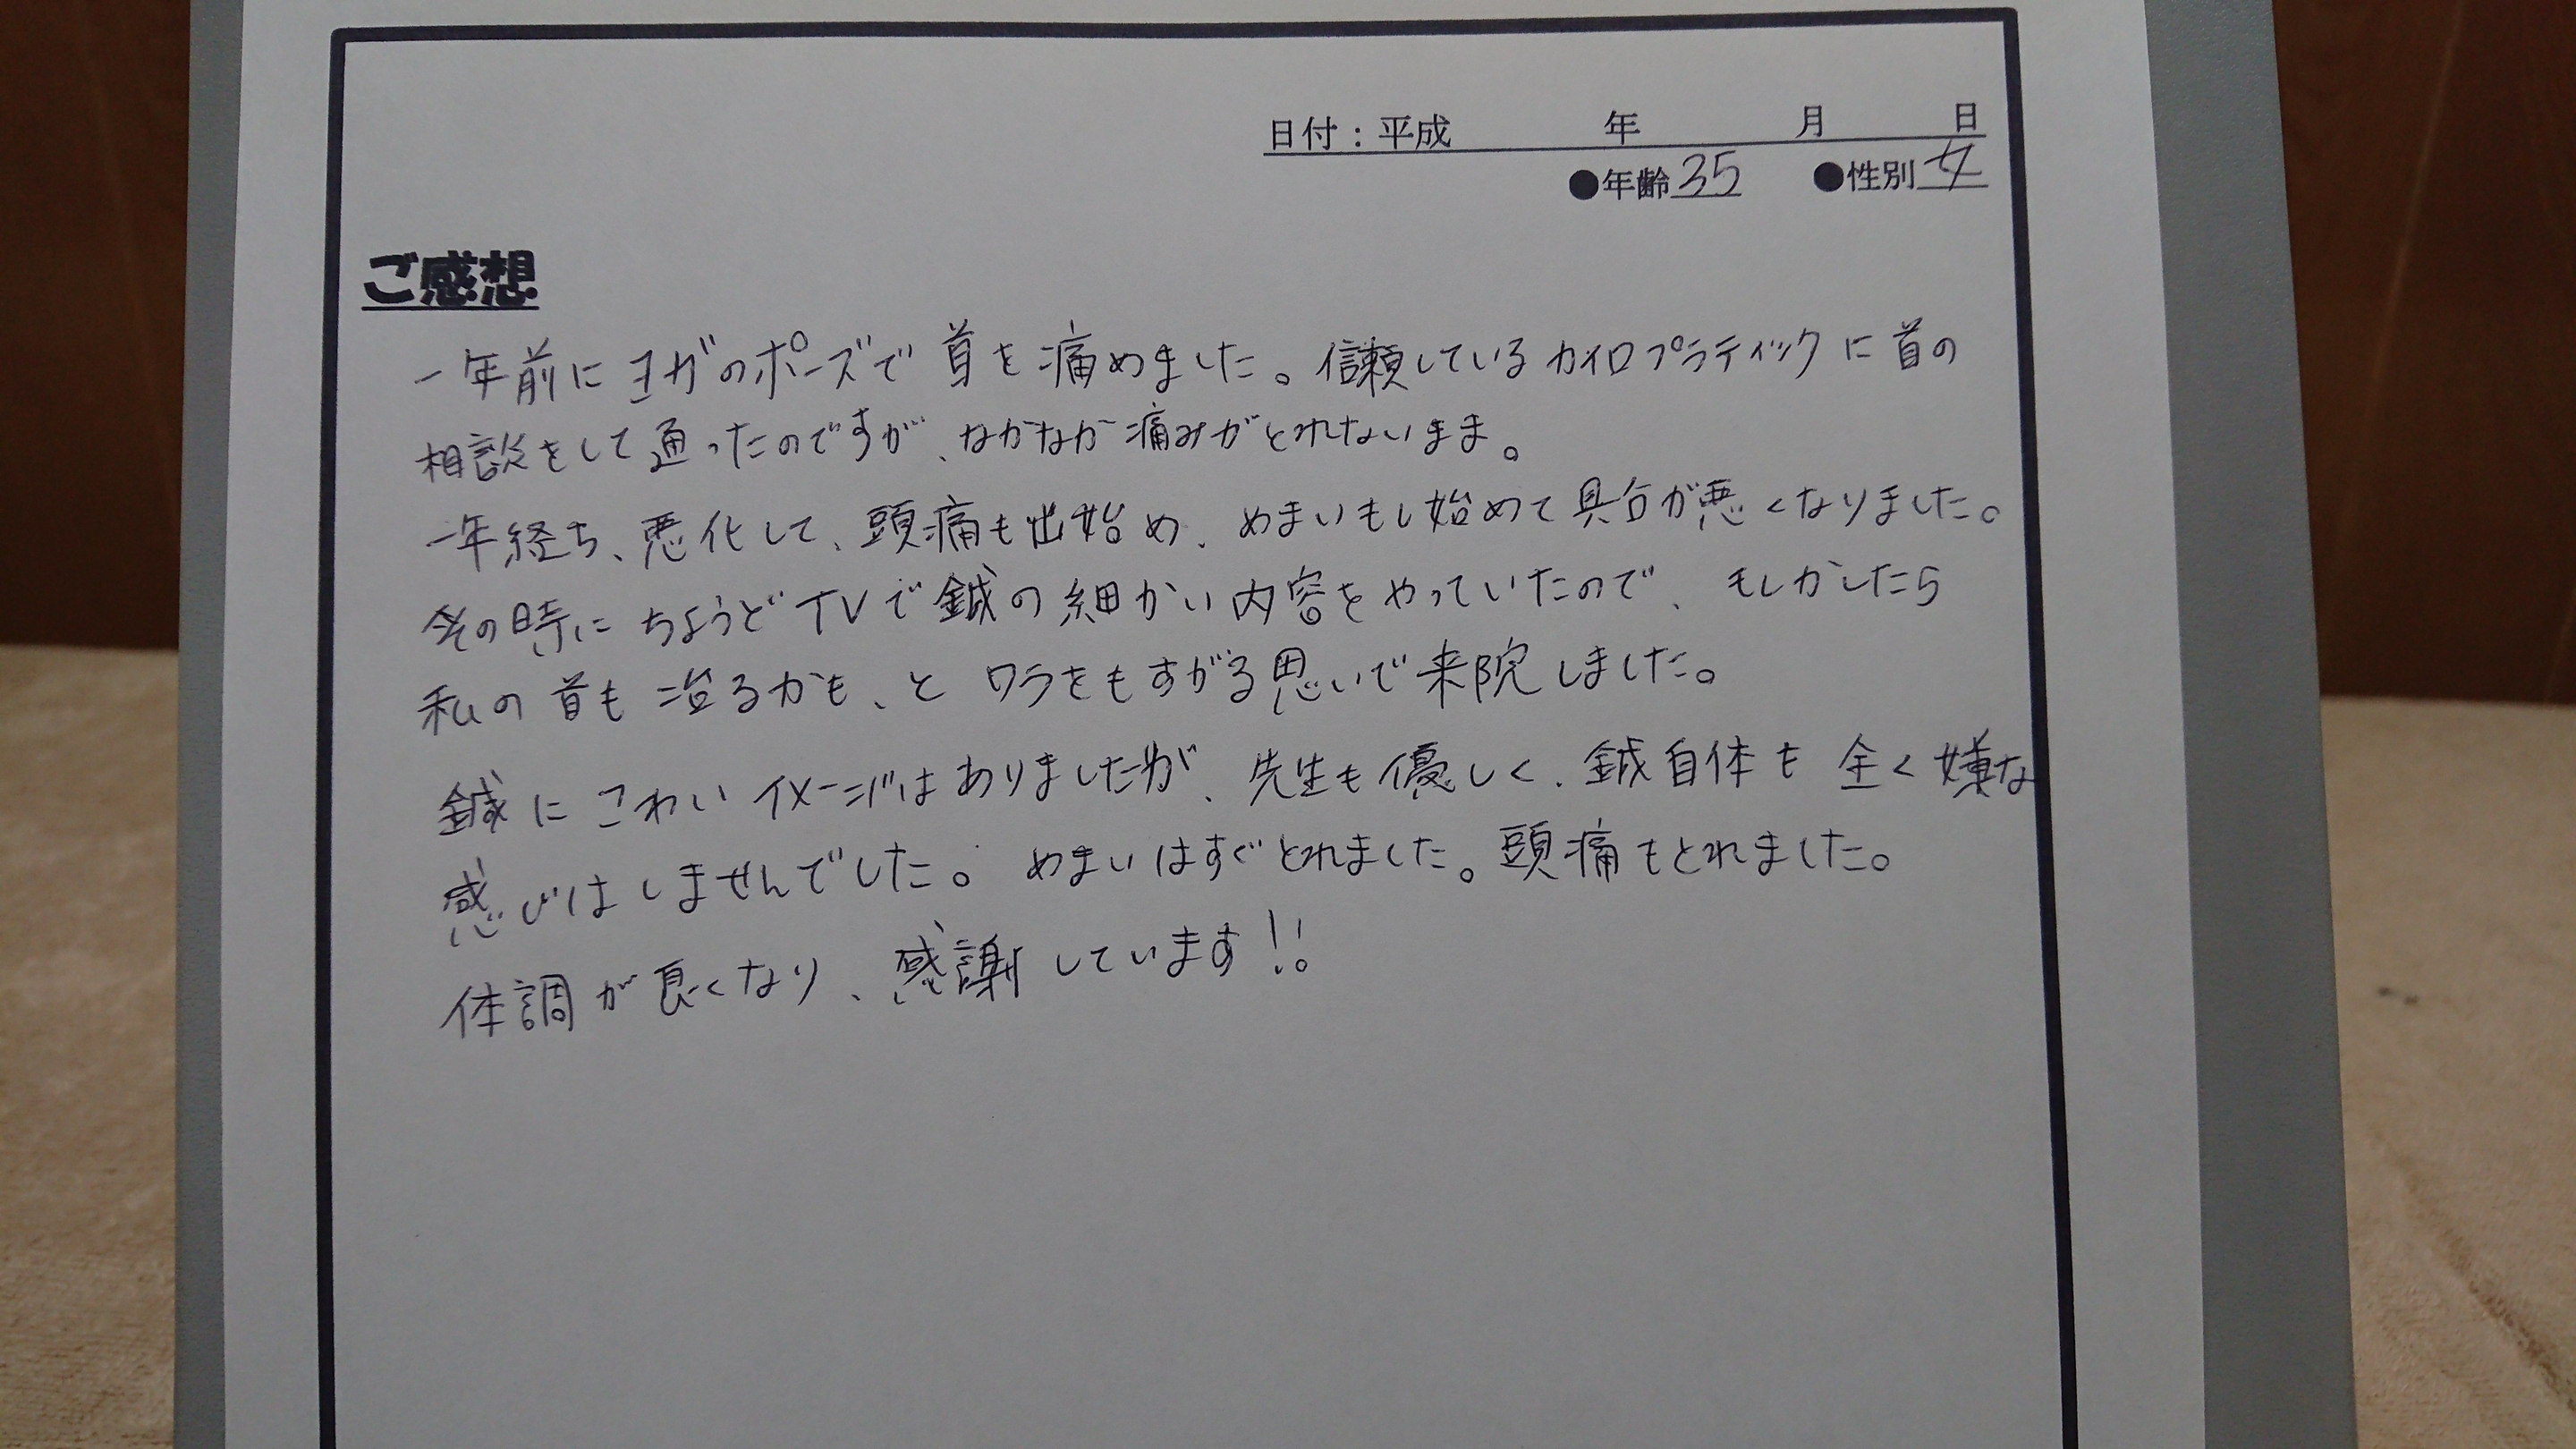 日付：平成　　　年　　　月　　　日
●年齢 35　●性別 女
ご感想
一年前にヨガのポーズで首を痛めました。信頼しているカイロプラティックに首の
相談をして通ったのですが、なかなか痛みがとれないまま。
一年経ち、悪化して、頭痛も出始め、めまいもし始めて具合が悪くなりました。
その時にちょうどTVで鍼の細かい内容をやっていたので、もしかしたら
私の首も治るかも、とワラをもすがる思いで来院しました。
鍼にこわいイメージはありましたが、先生も優しく、鍼自体も全く嫌な
感じはしませんでした。めまいはすぐとれました。頭痛もとれました。
体調が良くなり、感謝しています!!